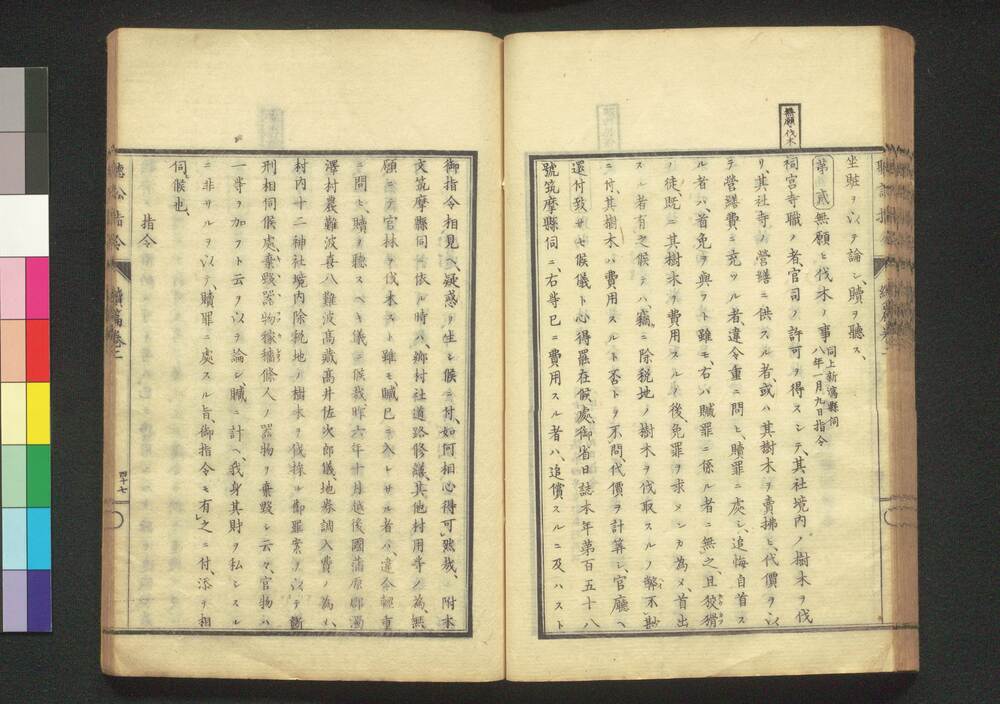 無願伐木
坐贓ヲ以テ論シ、贖ヲ聽ス、
第二貮 無願ヒ伐木ノ事 同上新潟縣伺 八年一月九日指令
祠宮寺職ノ者、官司ノ許可ヲ得スシテ、其社境内ノ樹木ヲ伐
リ、其社寺ノ營繕ニ供スル者、或ハ其樹木ヲ賣拂ヒ、代價ヲ以
テ營繕費ニ充ツル者、違令重ニ問ヒ、贖罪ニ處シ、追悔自首ス
ル者ハ、首免ヲ與フト雖モ、右ハ贓罪ニ係ル者ニ無之、且狡猾
ノ徒、既ニ其樹木ヲ費用スルノ後、免罪ヲ求メンカ為メ、首出
スル者有之候テハ、竊ニ除税地ノ樹木ヲ伐取スルノ弊不尠
ニ付、其樹木ハ費用スルト否トヲ不問、代價ヲ計算シ、官廳ヘ
還付致サセ候儀ト心得罷在候處、御省日誌本年第百五十八
號筑摩縣伺ニ、右等已ニ費用スル者ハ、追償スルニ及ハスト
御指令相見ヘ、疑惑ヲ生シ候ニ付、如何相心得可然哉、附本
文筑摩縣伺ニ依ル時ハ、鄉村社道路修繕、其他村用等ノ為、無
願ニテ官林ヲ伐木スト雖モ、贓已ニ入レサル者ハ、違令輕重
ニ問ヒ、贖ヲ聽スヘキ儀ニ候哉、昨六年十月越後國蒲原郡濁
澤村農難波喜八難波髙藏髙井佐次郎儀、地券調入費ノ為メ、
村内十二神社境内除税地ノ樹木ヲ伐採ル御罪案ヲ以テ斷
刑相伺候處、棄毀器物稼穡條人ノ器物ヲ棄毀シ云々、官物ハ
一等ヲ加フト云ヲ以ヲ論シ、贓ニ計ヘ、我身其財ヲ私シスル
ニ非サルヲ以テ、贖罪ニ處スル旨、御指令モ有之ニ付、添ヲ相
伺候也、
指令
聽訟指令 續篇卷二
四十七